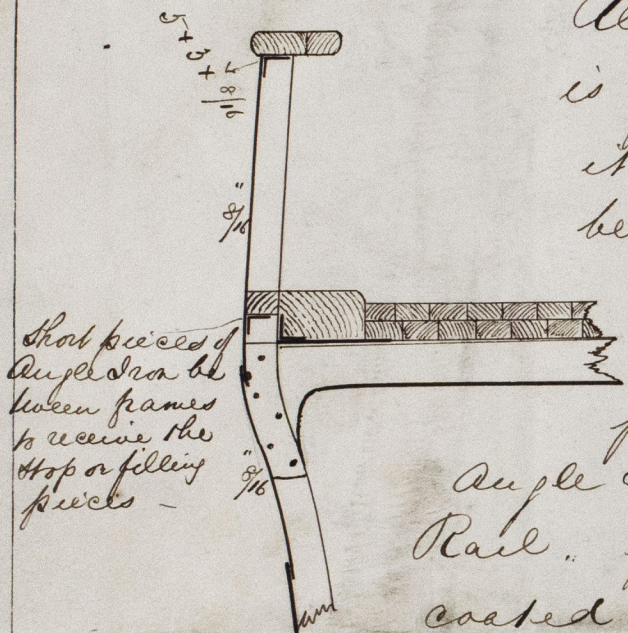 5 + 3 + 8/16
8/16"
Short pieces of
Angle Iron be
tween frames
to receive the
stop or filling
pieces -
8/16"
is
it
be
Angle
Rail "
coated